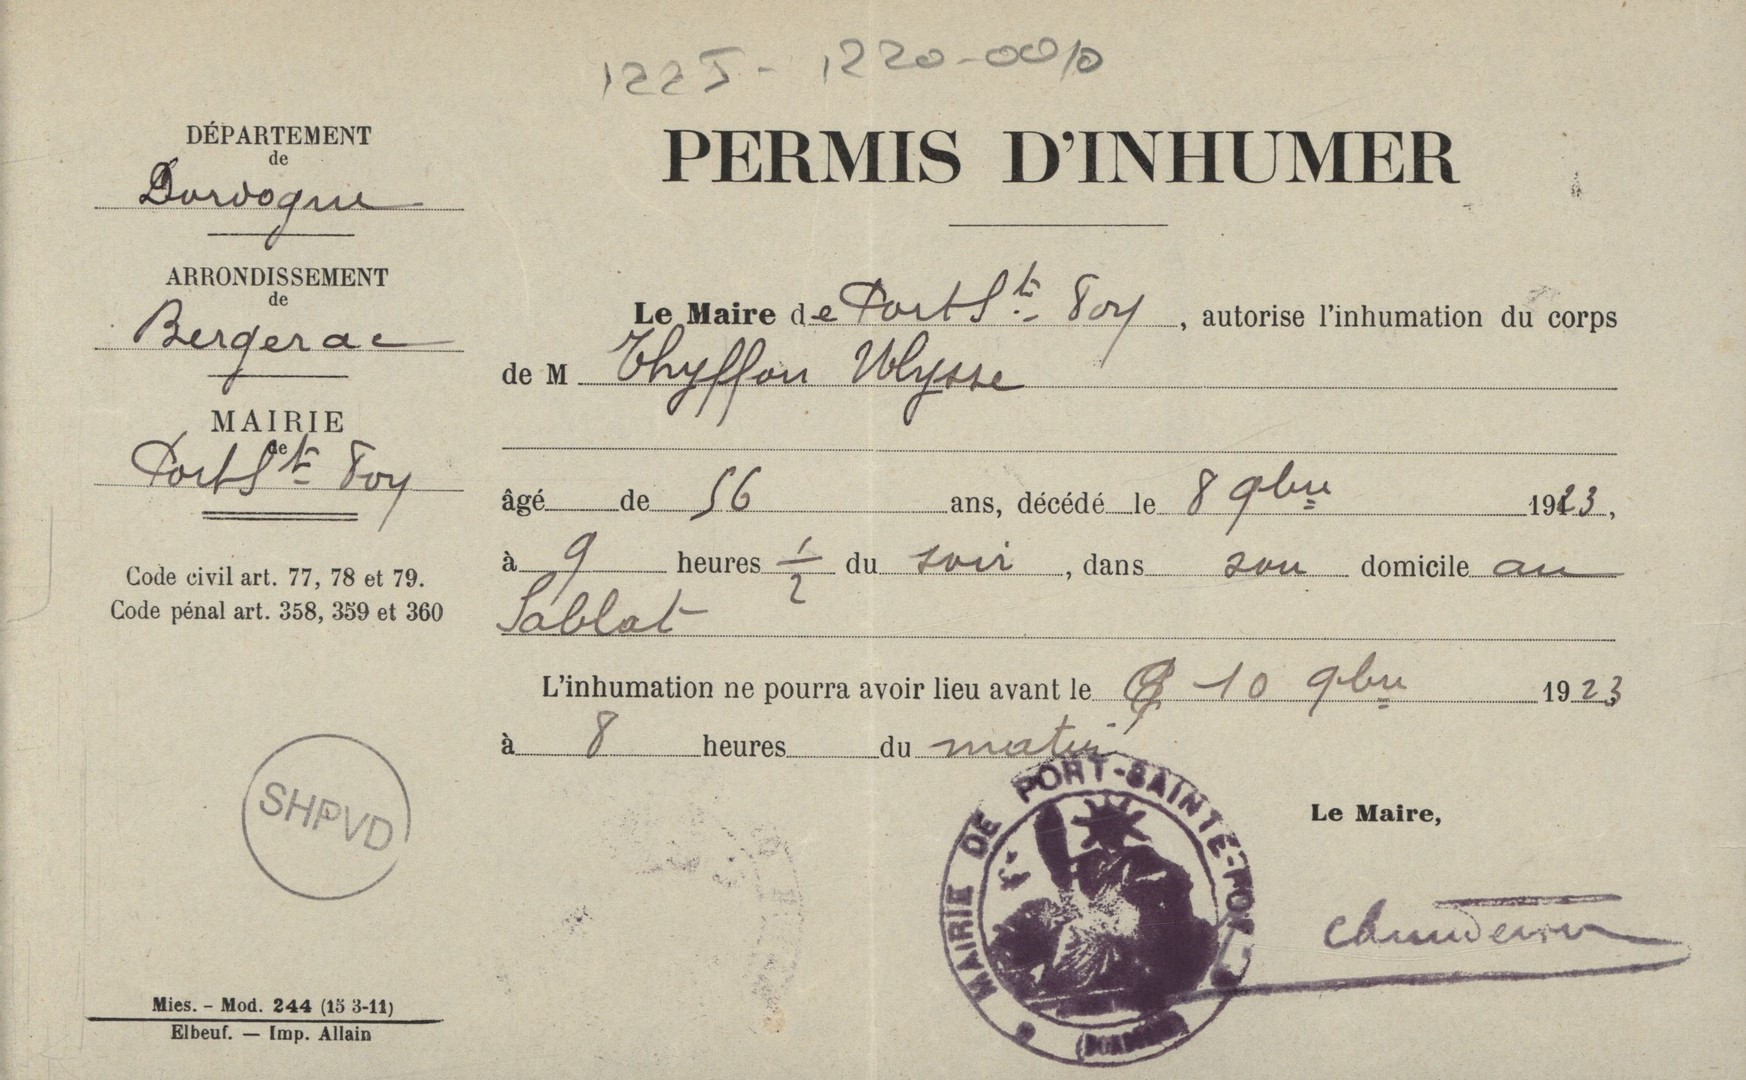 1225-1220-0010
PERMIS D'INHUMER
DÉPARTEMENT
de
Dordogne
ARRONDISSEMENT
de
Bergerac
MAIRIE
de
Port Ste Foy
Code civil art. 77, 78 et 79.
Code pénal art. 358, 359 et 360
Le Maire de Port Ste Foy, autorise l'inhumation du corps
de M Thyffon Ulysse
âgé de 56 ans, décédé le 8 9bre 1923,
à 9 heures 1/2 du soir, dans son domicile au
Sablat
L'inhumation ne pourra avoir lieu avant le 10 9bre 1923
à 8 heures du matin
Le Maire,
MAIRIE DE PORT-SAINTE-FOY
(DORDOGNE)
SHPVD
Mies. - Mod. 244 (15 3-11)
Elbeuf. — Imp. Allain